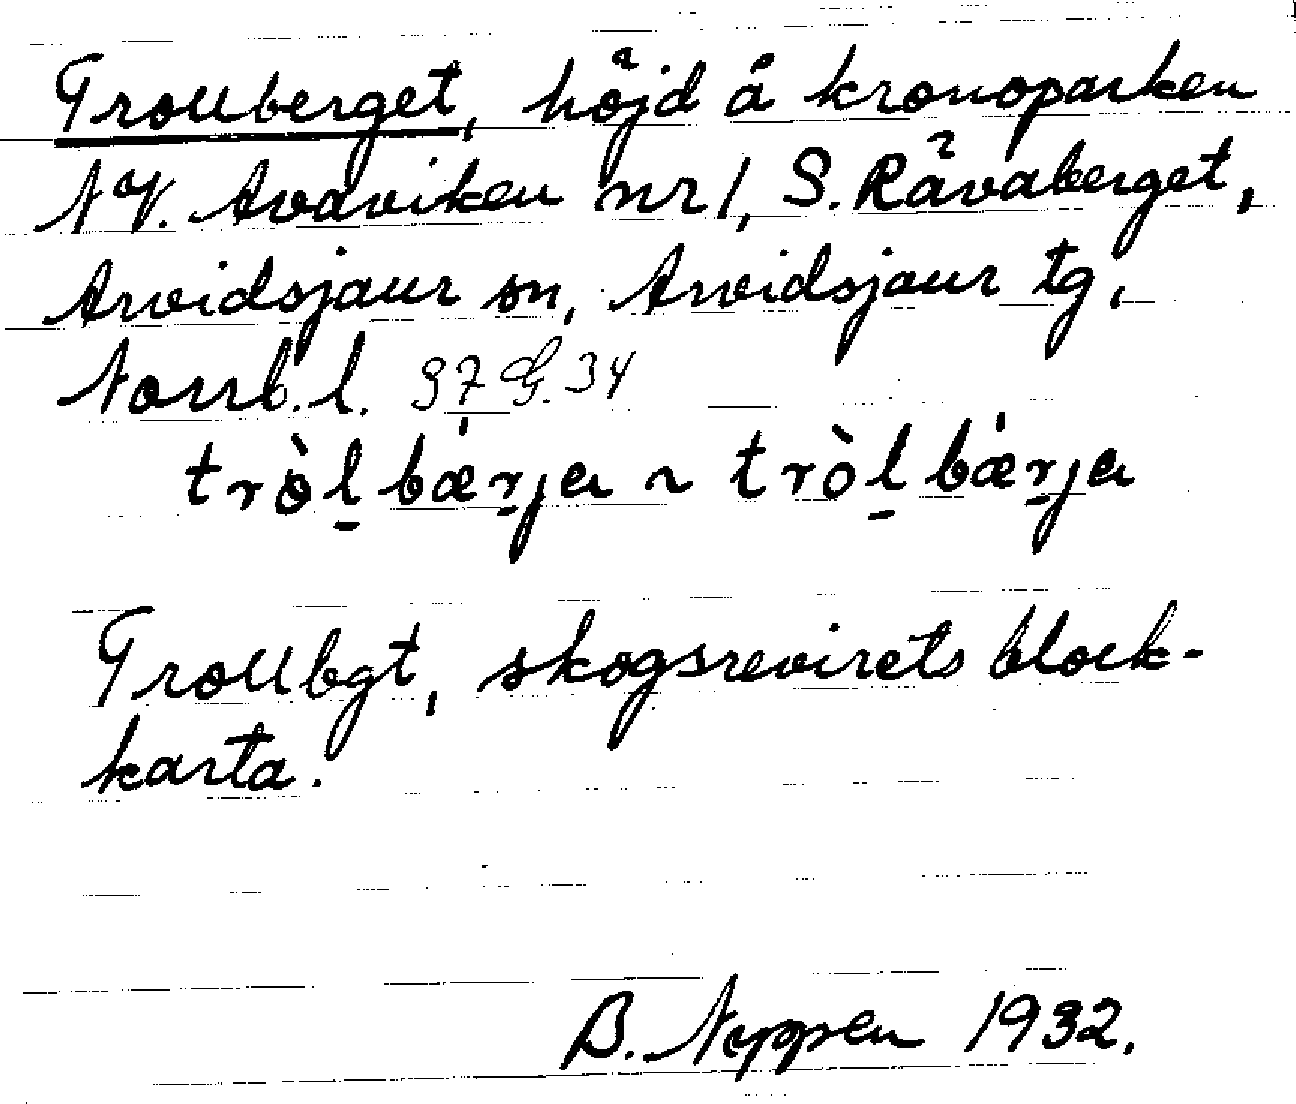 Trollberget, höjd å kronoparken
NV. Avaviken nr 1, S. Rävaberget,
Arvidsjaur sn, Arvidsjaur tg,
Norrb. l. 97 G. 34
tròl̠ bæ̍r̠ja ~ tròl̠ bæ̍r̠ja
Trollbgt, skogsrevirets block-
karta.
B. Neppen 1932.